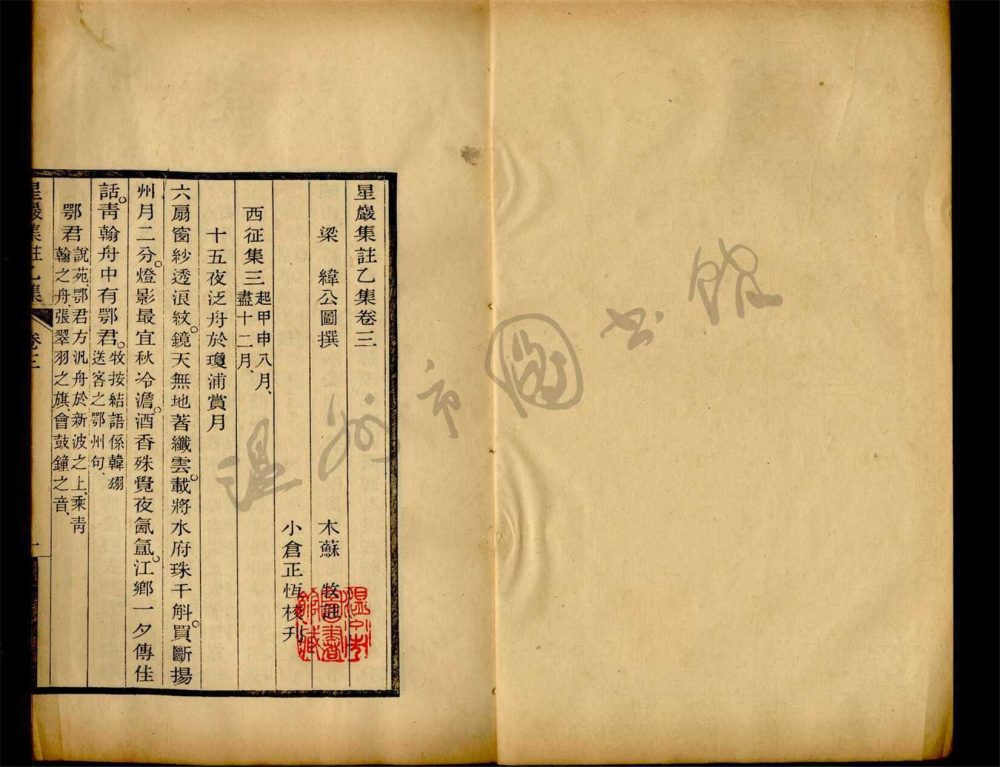 星巖集註乙集卷三
梁 緯公圖撰 木蘇 牧註
小倉正恆校刋
西征集三 起甲申八月、
盡十二月、
十五夜泛舟於瓊浦賞月
六扇窗紗透浪紋。鏡天無地著纖雲。載將水府珠千斛。買斷揚
州月二分。燈影最宜秋冷澹。酒香殊覺夜氤氳。江鄉一夕傳佳
話。靑翰舟中有鄂君。牧按結語係韓翃
送客之鄂州句、
鄂君 說苑、鄂君方汎舟於新波之上、乘靑
翰之舟、張翠羽之旗、會鼓鐘之音、
星巖集註乙集 卷三 一
温州市圖書館
温州市圖書館藏